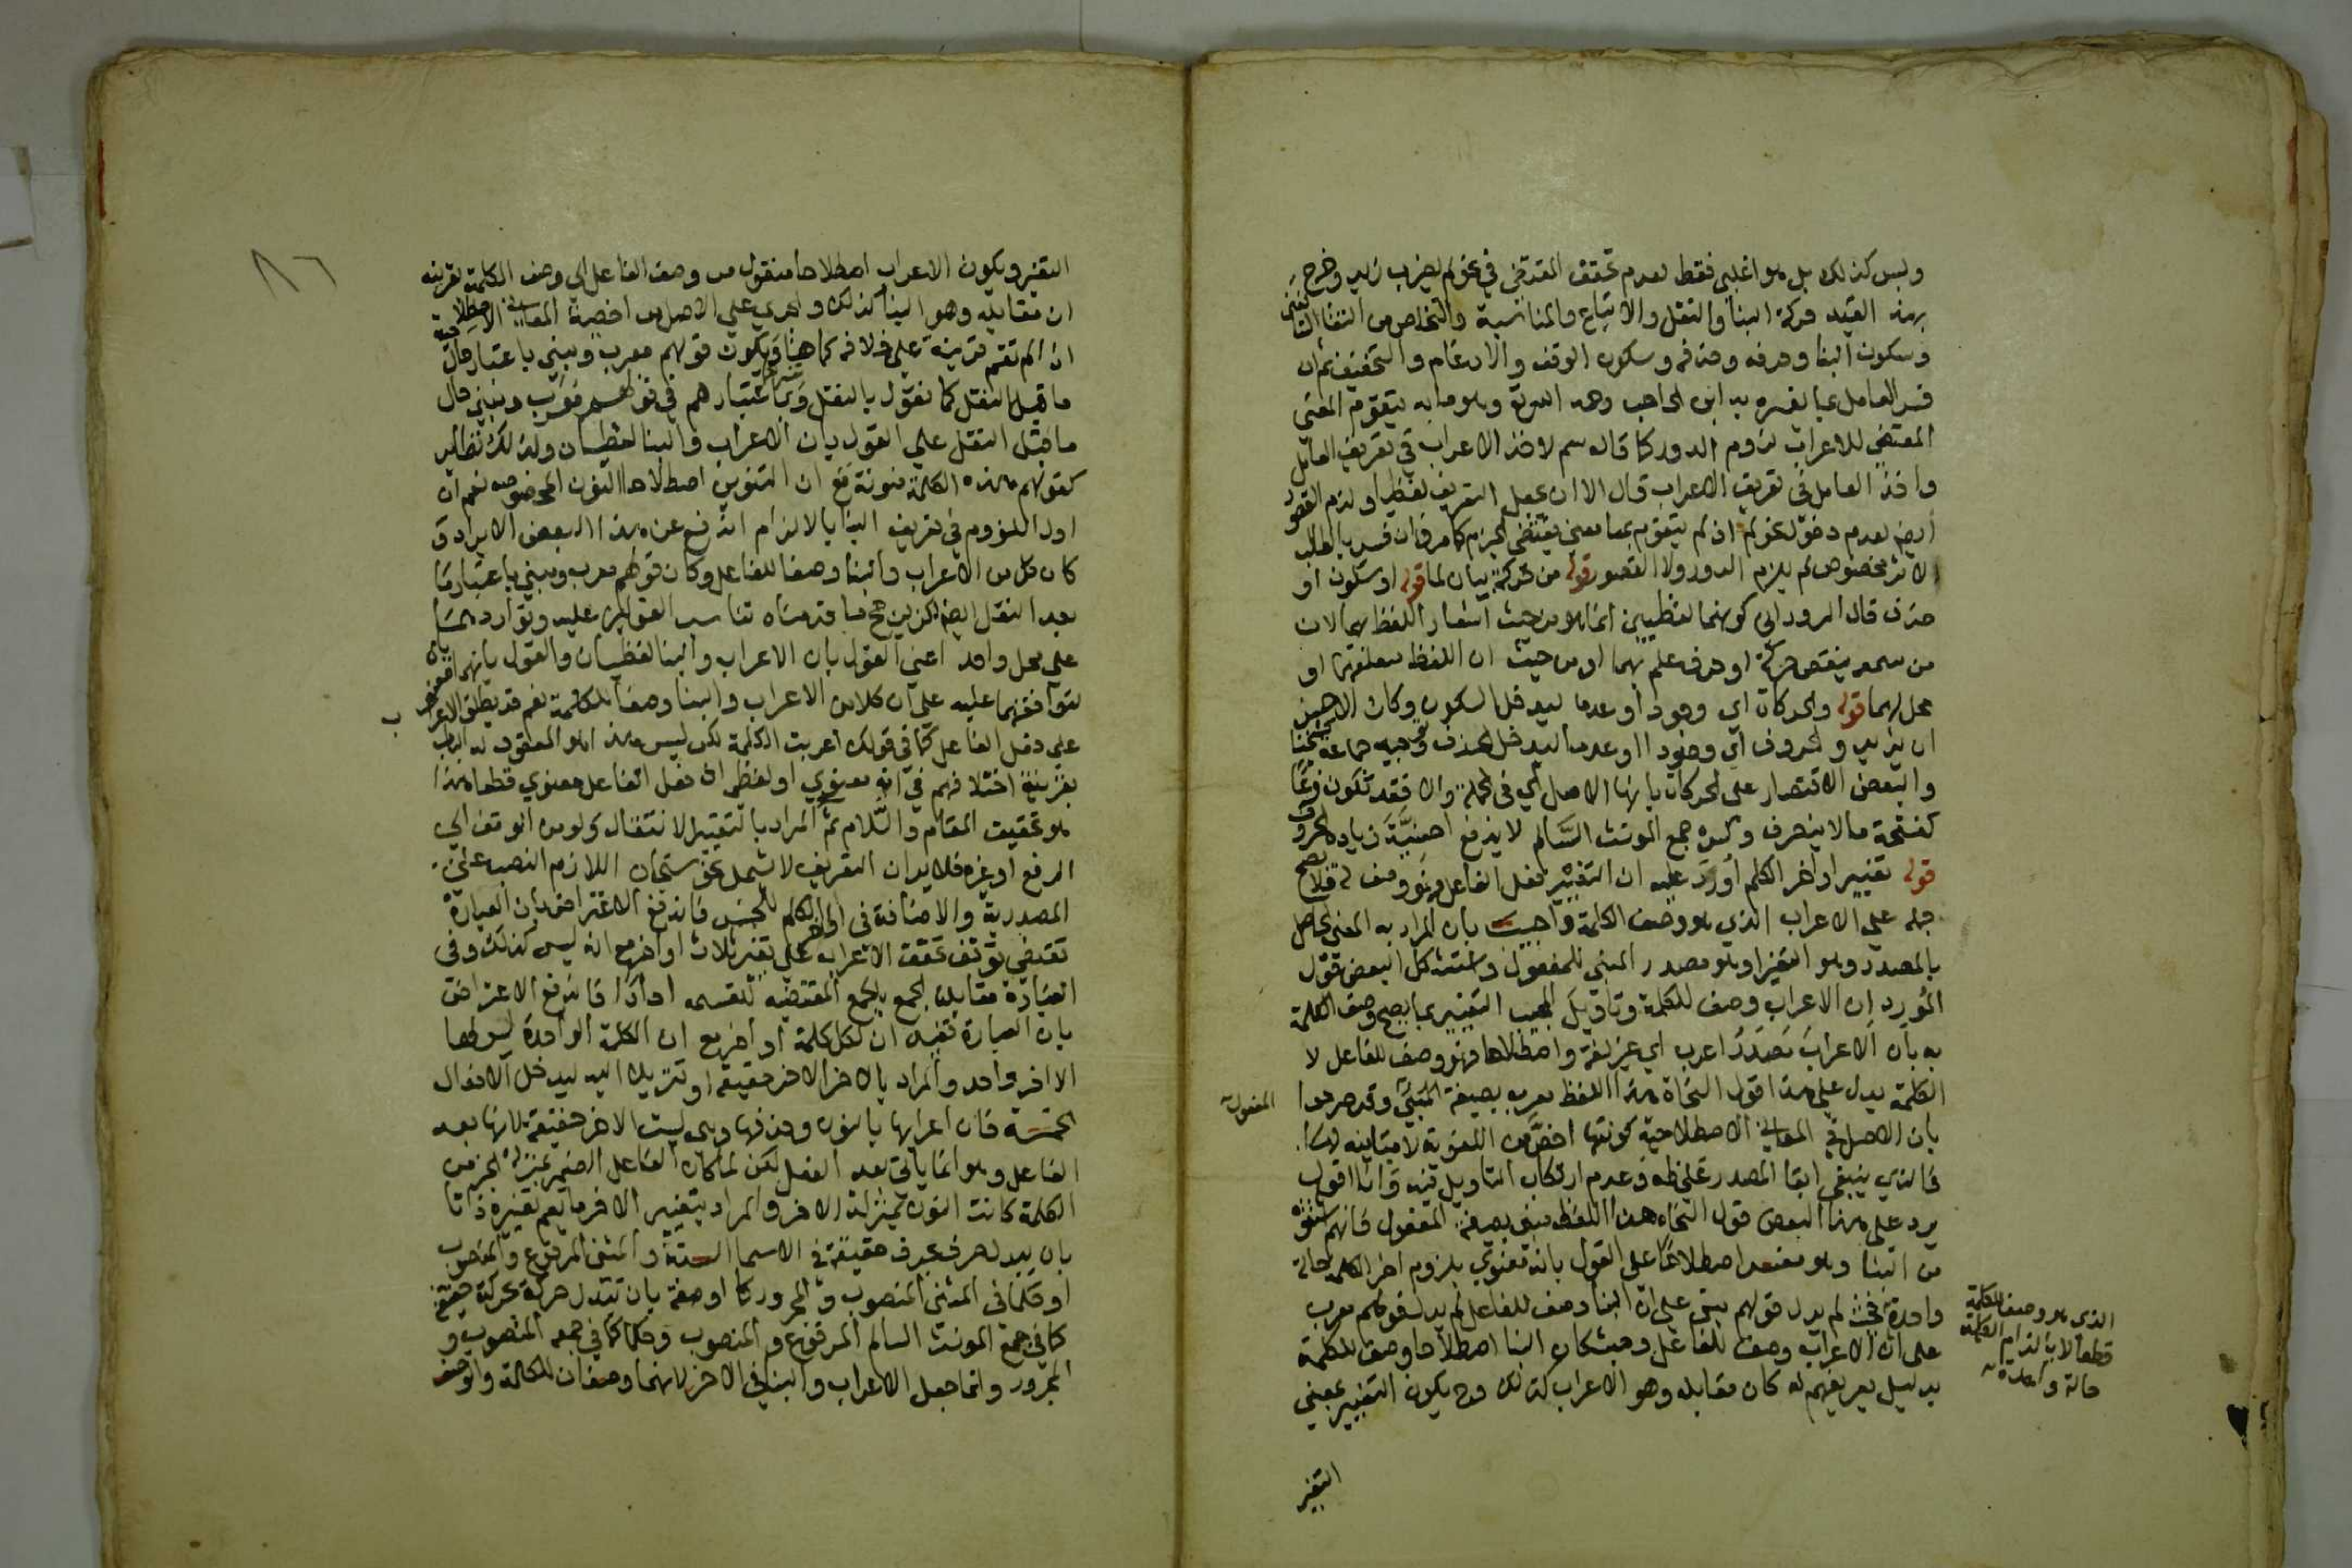 وليس كذلك بل هو اغلبي فقط لعدم تحقق المقتضى في نحو لم يضرب زيد وخرج
بهذا القيد حركة البنا والنقل والاتباع والمناسبة والتخلص من التقا الساكنين
وسكون البنا وحرفه وحذفه وسكون الوقف والادغام والتخفيف ثم ان
فسر العامل بما فسره به ابن الحاجب وهو ما به يتقوم المعنى
المقتضي للاعراب لزوم الدور كما قاله سم لاخذ الاعراب في تعريف العامل
واخذ العامل في تعريف الاعراب قال الا ان يجعل التعريف لفظيا ولزم القصور
ايضا لعدم دخول نحو لم اذ لم يتقوم بها معنى يقتضي الجزم كما مر وان فسر بالطالب
لاثر مخصوص لم يلزم الدور ولا القصور قوله من حركة بيان لما قوله او سكون او
حذف قال الروداني كونهما لفظيين انما هو من حيث اشعار اللفظ بهما لان
من سمعه ينقص حركة او حرف علم بهما او من حيث ان اللفظ متعلقهما او
محل لهما قوله والحركات اي وجودا وعدما ليدخل السكون وكان الاحسن
ان يزيد والحروف اي وجودا وعدما ليدخل الحذف وتوجيه جماعة كشيخنا
والبعض الاقتصار على الحركات بانها الاصل اي في الجملة والا فقد تكون فرعا
كفتحة ما لا ينصرف وكسرة جمع المونث السالم لا يدفع احسنية زيادة الحروف
قوله تغيير اواخر الكلم اورد عليه ان التغيير فعل الفاعل فهو وصف له فلا يصح
حمله على الاعراب الذي هو وصف الكلمة واجيب بان المراد به المعنى الحاصل
بالمصدر وهو التغير او هو مصدر المبني للمفعول واستشكل البعض قول
المورد ان الاعراب وصف للكلمة وتاويل المجيب التغيير بما يصح وصف الكلمة
به بان الاعراب مصدر اعرب اي غير لغة واصطلاحا فهو وصف للفاعل لا
الكلمة يدل على هذا قول النحاة هذا اللفظ معرب بصيغة المفعول وقد صرحوا
بان الاصل في المعاني الاصطلاحية كونها اخص من اللغوية لا مباينة لها
فالذي ينبغي ابقا المصدر على ظاهره وعدم ارتكاب التاويل فيه وانا اقول
يرد على هذا البعض قول النحاة هذا اللفظ مبني بصيغة المفعول فانهم اشتقوه
من البنا وهو مفسر اصطلاحا على القول بانه معنوي بلزوم اخر الكلمة حالة
واحدة فحيث لم يدل قولهم مبني على ان البنا وصف للفاعل لم يدل قولهم معرب
على ان الاعراب وصف للفاعل وحيث كان البنا اصطلاحا وصف للكلمة
بدليل تعريفهم له كان مقابله وهو الاعراب كذلك وح يكون التغيير بمعنى
المفعول
الذي هو وصف للكلمة
قطعا لا بالتزام الكلمة
حالة واحدة
التغير
٨٦
التغير ويكون الاعراب اصطلاحا منقول من وصف الفاعل الى وصف الكلمة بقرينة
ان مقابله وهو البنا كذلك واجري على الاصل من اخصية المعاني الاصطلاحية
اذا لم تقم قرينة على خلافه كما هنا ويكون قولهم معرب ومبني باعتبار حال
ما قبل النقل كما نقول بالنقل وباعتبارهم في قولهم معرب ومبني حال
ما قبل النقل على القول بان الاعراب والبنا لفظيان ولذلك نظائر
كقولهم هذه الكلمة منونة مع ان التنوين اصطلاحا النون المخصوصة نعم ان
اول اللزوم في تعريف البنا بالالزام اندفع عن هذا البعض الايراد و
كان كل من الاعراب والبنا وصفا للفاعل وكان قولهم معرب ومبني باعتبار ما
بعد النقل ايضا لكن يرجح ما قدمناه تناسب القولين عليه وتواردهما
على محل واحد اعني القول بان الاعراب والبنا لفظيان والقول بانهما معنويان
لتوافقهما عليه على ان كلا من الاعراب والبنا وصف للكلمة نعم قد يطلق الاعراب
على فعل الفاعل كما في قولك اعربت الكلمة لكن ليس هذا هو المعقود له الباب
بقرينة اختلافهم في انه معنوي او لفظي اذ فعل الفاعل معنوي قطعا هذا
هو تحقيق المقام والسلام ثم المراد بالتغيير الانتقال ولو من الوقف الى
الرفع او غيره فلا يرد ان التعريف لا يشمل نحو سبحان اللازم النصب على
المصدرية والاضافة في اواخر الكلم للجنس فاندفع الاعتراض بان العبارة
تقتضي توقف تحقق الاعراب على تغير ثلاث اواخر مع انه ليس كذلك وفي
العبارة مقابلة الجمع بالجمع المقتضية للقسمة احادا فاندفع الاعتراض
بان العبارة تفيد ان لكل كلمة اواخر مع ان الكلمة الواحدة ليس لها
الا اخر واحد والمراد بالاخر الاخر حقيقة او تنزيلا ليدخل الافعال
الخمسة فان اعرابها بالنون وحذفها وهي ليست الاخر حقيقة لانها بعد
الفاعل وهو انما ياتي بعد الفعل لكن لما كان الفاعل الضمير بمنزلة الجزء من
الكلمة كانت النون بمنزلة الاخر والمراد بتغيير الاخر ما يعم تغيره ذاتا
بان يبدل حرف بحرف حقيقة في الاسما الستة والمثنى المرفوع والمنصوب
او حكما في المثنى المنصوب والمجرور كذا او صفة بان تبدل حركة بحركة حقيقة
كما في جمع المونث السالم المرفوع والمنصوب وحكما كما في جمعه المنصوب و
المجرور وانما جعل الاعراب والبنا في الاخر لانهما وصفان للكلمة والوصف